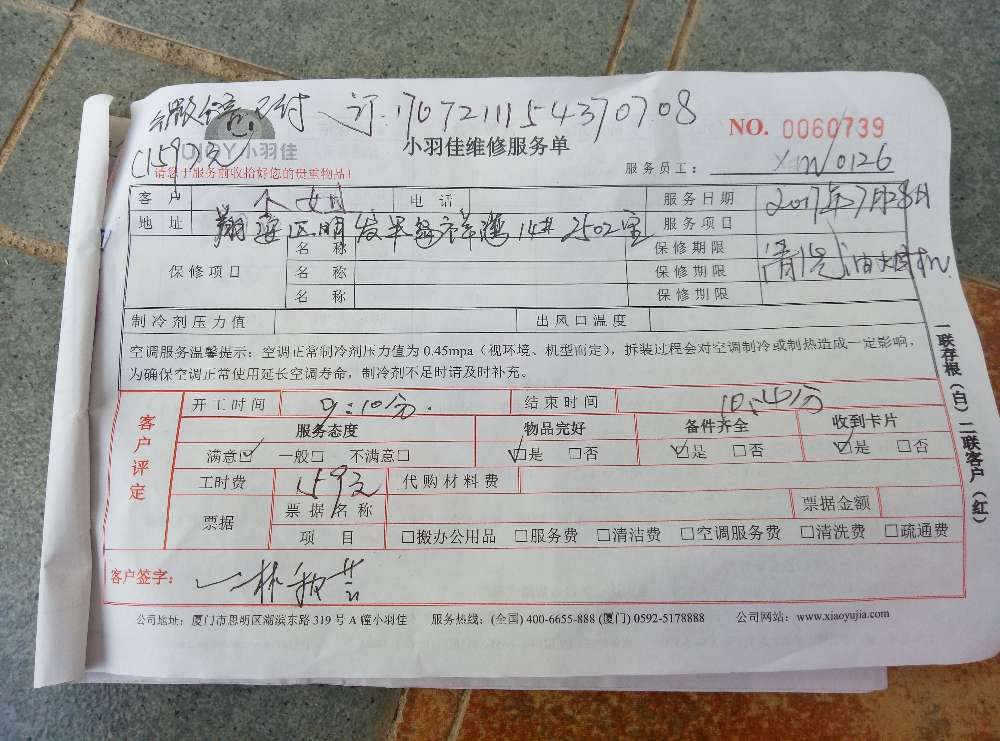 全额已付 订:1707211154370708
(159元)
OJOY小羽佳
小羽佳维修服务单
NO. 0060739
请您于服务前收拾好您的贵重物品!
服务员工: XM0126
客户 电话 服务日期 2017年7月28日
地址 翔安区明发半岛祥湾14# 2502室 服务项目 清洗油烟机
保修项目 名称 保修期限
名称 保修期限
名称 保修期限
制冷剂压力值 出风口温度
空调服务温馨提示:空调正常制冷剂压力值为 0.45mpa(视环境、机型而定),拆装过程会对空调制冷或制热造成一定影响,
为确保空调正常使用延长空调寿命,制冷剂不足时请及时补充。
客户评定
开工时间 9:10分. 结束时间 10:40分
服务态度 物品完好 备件齐全 收到卡片
满意☑ 一般□ 不满意□ ☑是 □否 ☑是 □否 ☑是 □否
工时费 159元 代购材料费
票据 票据名称 票据金额
项目 □搬办公用品 □服务费 □清洁费 □空调服务费 □清洗费 □疏通费
客户签字:
公司地址:厦门市思明区湖滨东路 319 号 A 幢小羽佳 服务热线:(全国) 400-6655-888 (厦门) 0592-5178888 公司网站:www.xiaoyujia.com
一联存根(白)二联客户(红)